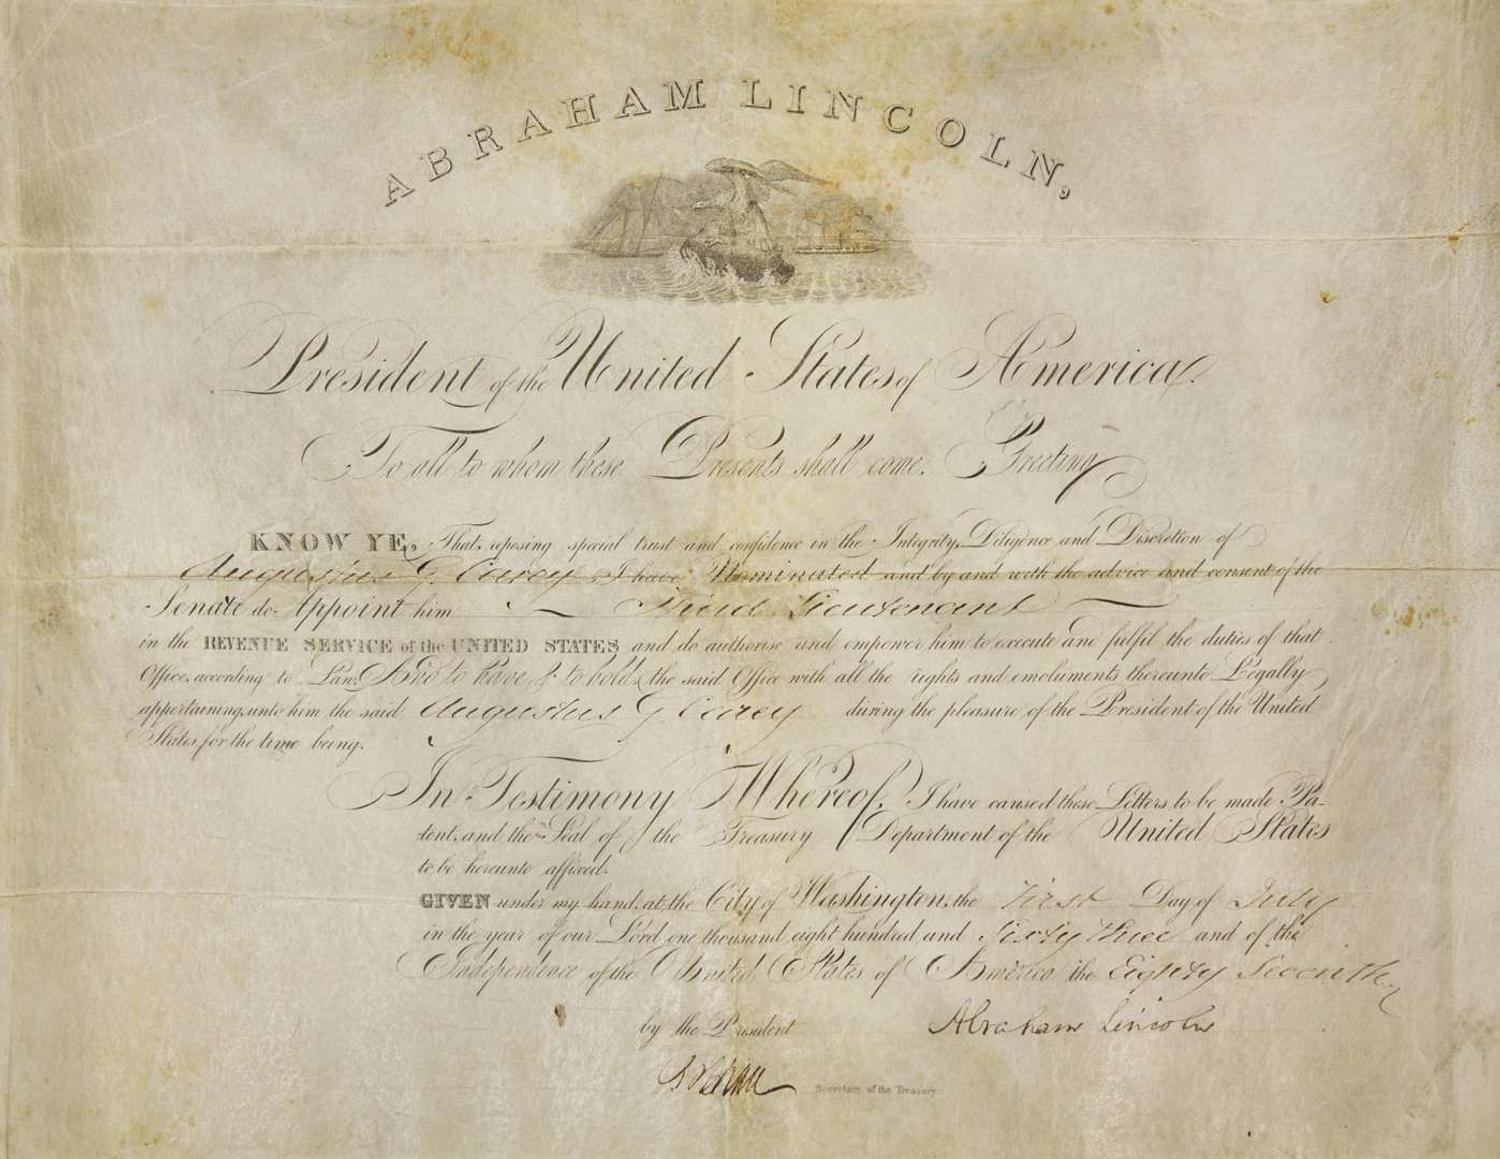 ABRAHAM LINCOLN,
President of the United States of America.
To all to whom these Presents shall come. Greeting
KNOW YE, That reposing special trust and confidence in the Integrity, Diligence and Discretion of
Augustus G. Carey I have Nominated and by and with the advice and consent of the
Senate do Appoint him Third Lieutenant
in the REVENUE SERVICE of the UNITED STATES and do authorise and empower him to execute and fulfil the duties of that
Office, according to Law: And to have & to hold, the said Office with all the rights and emoluments thereunto Legally
appertaining, unto him the said Augustus G Carey during the pleasure of the President of the United
States for the time being.
In Testimony Whereof, I have caused these Letters to be made Pa-
tent, and the Seal of the Treasury Department of the United States
to be hereunto affixed.
GIVEN under my hand, at the City of Washington, the First Day of July
in the year of our Lord, one thousand, eight hundred, and Sixty three and of the
Independence of the United States of America the Eighty Seventh.
by the President Abraham Lincoln
Secretary of the Treasury